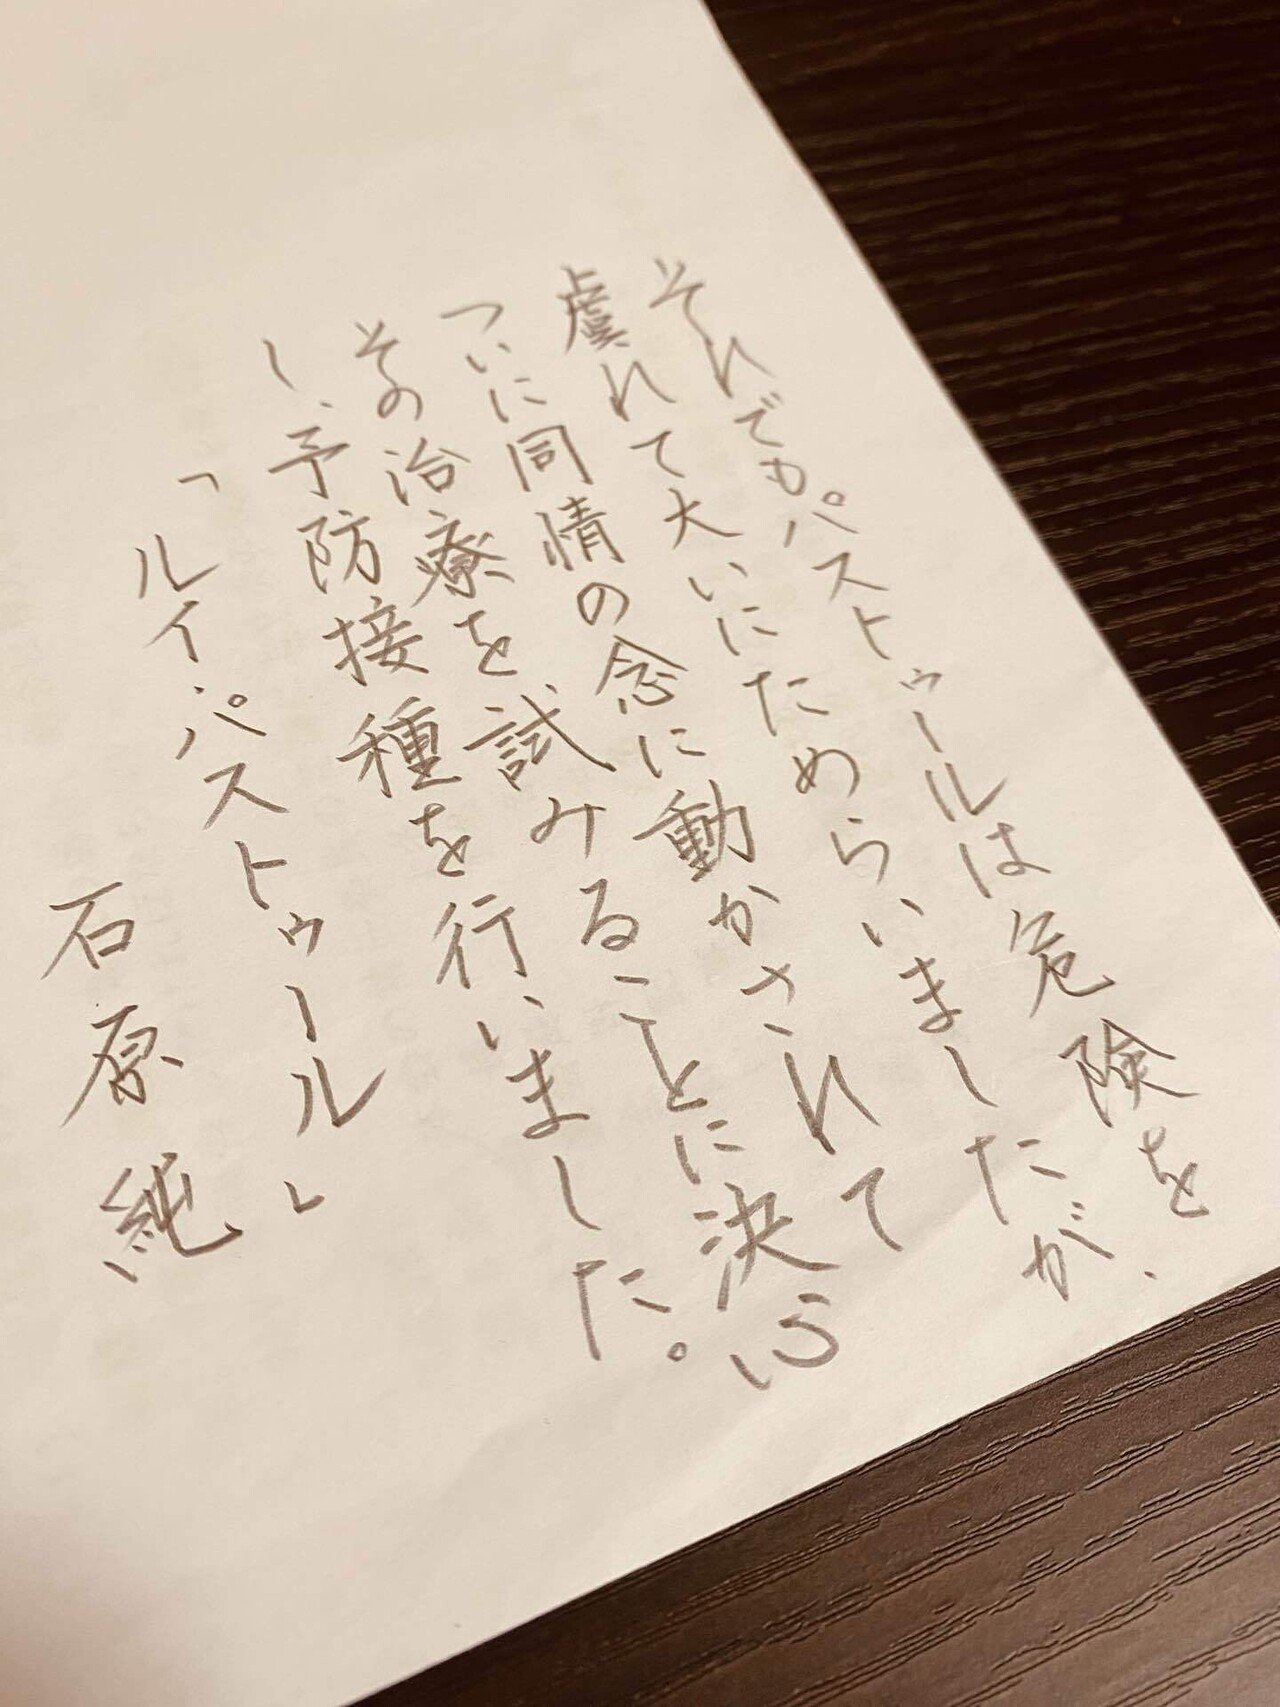 それでもパストゥールは危険を
虞れて大いにためらいましたが、
ついに同情の念に動かされて
その治療を試みることに決心
し、予防接種を行いました。
「ルイ・パストゥール」
石原純